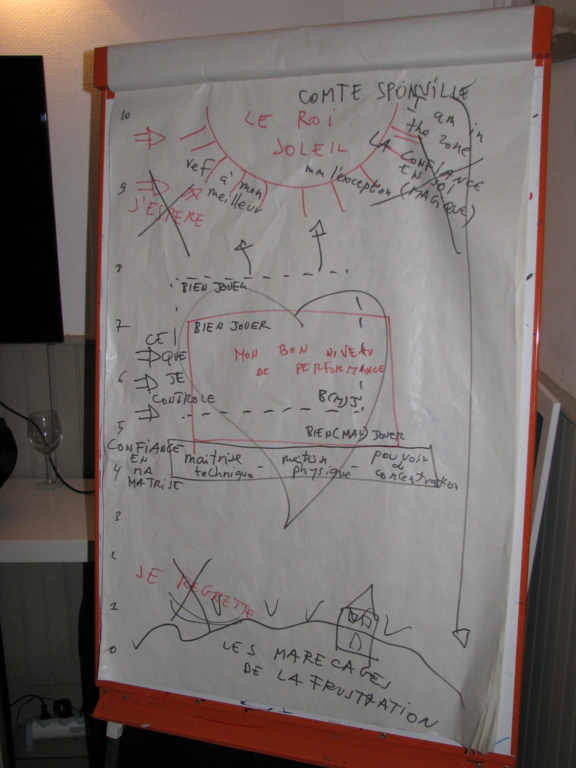 COMTE SPONVILLE
10
LE ROI
SOLEIL
I am in
the zone
LA CONFIANCE
EN SOI
(MAGIQUE)
ref a mon
meilleur
mm l'exception
9
J'ESPERE
8
BIEN JOUER
7
BIEN JOUER
CE
QUE
JE
CONTROLE
MON BON NIVEAU
DE PERFORMANCE
6
B(M)J
5
BIEN(MAL)JOUER
CONFIANCE
EN
MA
MATRISE
4
maitrise
technique -
physique -
pouvoir
de
concentration
3
2
JE REGRETTE
1
0
LES MARECAGES
DE LA FRUSTRATION